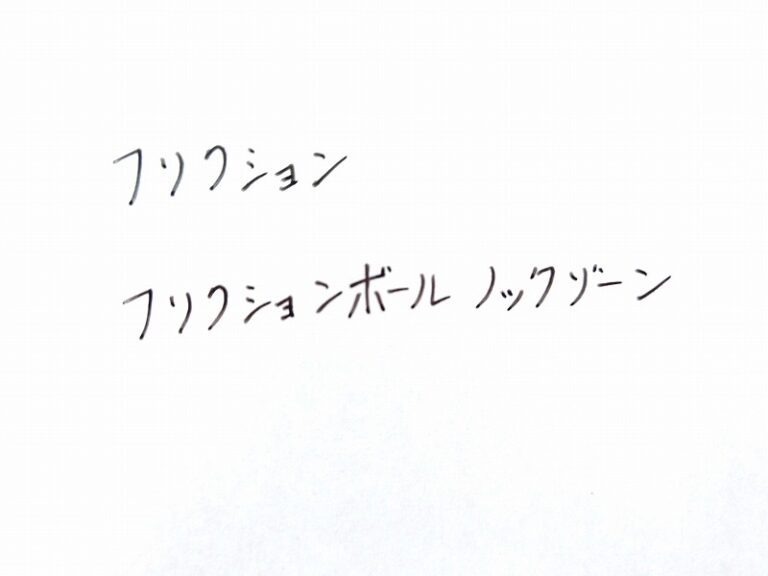 フリクション
フリクションボール ノックゾーン